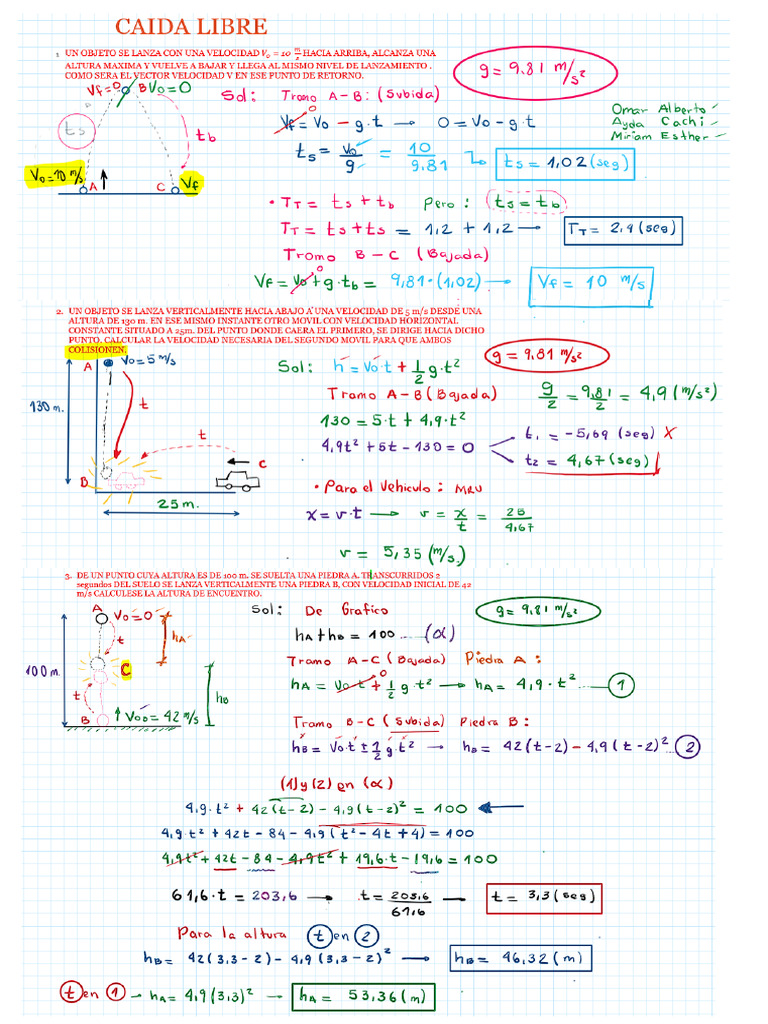 CAIDA LIBRE
1 UN OBJETO SE LANZA CON UNA VELOCIDAD V₀ = 10 m/s HACIA ARRIBA, ALCANZA UNA
ALTURA MAXIMA Y VUELVE A BAJAR Y LLEGA AL MISMO NIVEL DE LANZAMIENTO .
COMO SERA EL VECTOR VELOCIDAD V EN ESE PUNTO DE RETORNO.
g = 9,81 m/s²
Vf=0 B V₀=0
ts
tb
V₀=10 m/s A C Vf
Sol: Tramo A-B: (Subida)
Vf = V₀ - g·t → 0 = V₀ - g·t
0
ts = V₀/g = 10/9,81 → ts = 1,02 (seg)
Omar Alberto
Ayda Cachi
Miriam Esther
• TT = ts + tb Pero: (ts = tb)
TT = ts + ts = 1,2 + 1,2 → TT = 2,4 (seg)
Tramo B-C (Bajada)
0
Vf = V₀ + g·tb = 9,81·(1,02) → Vf = 10 m/s
2. UN OBJETO SE LANZA VERTICALMENTE HACIA ABAJO A UNA VELOCIDAD DE 5 m/s DESDE UNA
ALTURA DE 130 m. EN ESE MISMO INSTANTE OTRO MOVIL CON VELOCIDAD HORIZONTAL
CONSTANTE SITUADO A 25m. DEL PUNTO DONDE CAERA EL PRIMERO, SE DIRIGE HACIA DICHO
PUNTO, CALCULAR LA VELOCIDAD NECESARIA DEL SEGUNDO MOVIL PARA QUE AMBOS
COLISIONEN.
g = 9,81 m/s²
A V₀=5 m/s
130 m.
t
t
C
B
25 m.
Sol: h = V₀·t + 1/2 g·t²
Tramo A-B (Bajada)
g/2 = 9,81/2 = 4,9 (m/s²)
130 = 5·t + 4,9·t²
4,9t² + 5t - 130 = 0
t₁ = -5,69 (seg) X
t₂ = 4,67 (seg)
• Para el vehiculo: MRU
x = v·t → v = x/t = 25/4,67
v = 5,35 (m/s.)
3. DE UN PUNTO CUYA ALTURA ES DE 100 m. SE SUELTA UNA PIEDRA A. TRANSCURRIDOS 2
segundos DEL SUELO SE LANZA VERTICALMENTE UNA PIEDRA B, CON VELOCIDAD INICIAL DE 42
m/s CALCULESE LA ALTURA DE ENCUENTRO.
g = 9,81 m/s²
A V₀=0
t
hA
100 m.
C
t
hB
B V₀B = 42 m/s
Sol: De Grafico
hA + hB = 100 ...... (α)
Tramo A-C (Bajada) Piedra A:
0
hA = V₀·t + 1/2 g·t² → hA = 4,9·t² ...... 1
Tramo B-C (Subida) Piedra B:
hB = V₀·t ± 1/2 g·t² → hB = 42(t-2) - 4,9(t-2)² 2
(1) y (2) en (α)
4,9·t² + 42(t-2) - 4,9(t-2)² = 100
4,9·t² + 42t - 84 - 4,9(t² - 4t + 4) = 100
4,9t² + 42t - 84 - 4,9t² + 19,6·t - 19,6 = 100
61,6·t = 203,6 → t = 203,6/61,6 — t = 3,3 (seg)
Para la altura t en 2
hB = 42(3,3-2) - 4,9(3,3-2)² → hB = 46,32 (m)
t en 1 → hA = 4,9(3,3)² → hA = 53,36 (m)